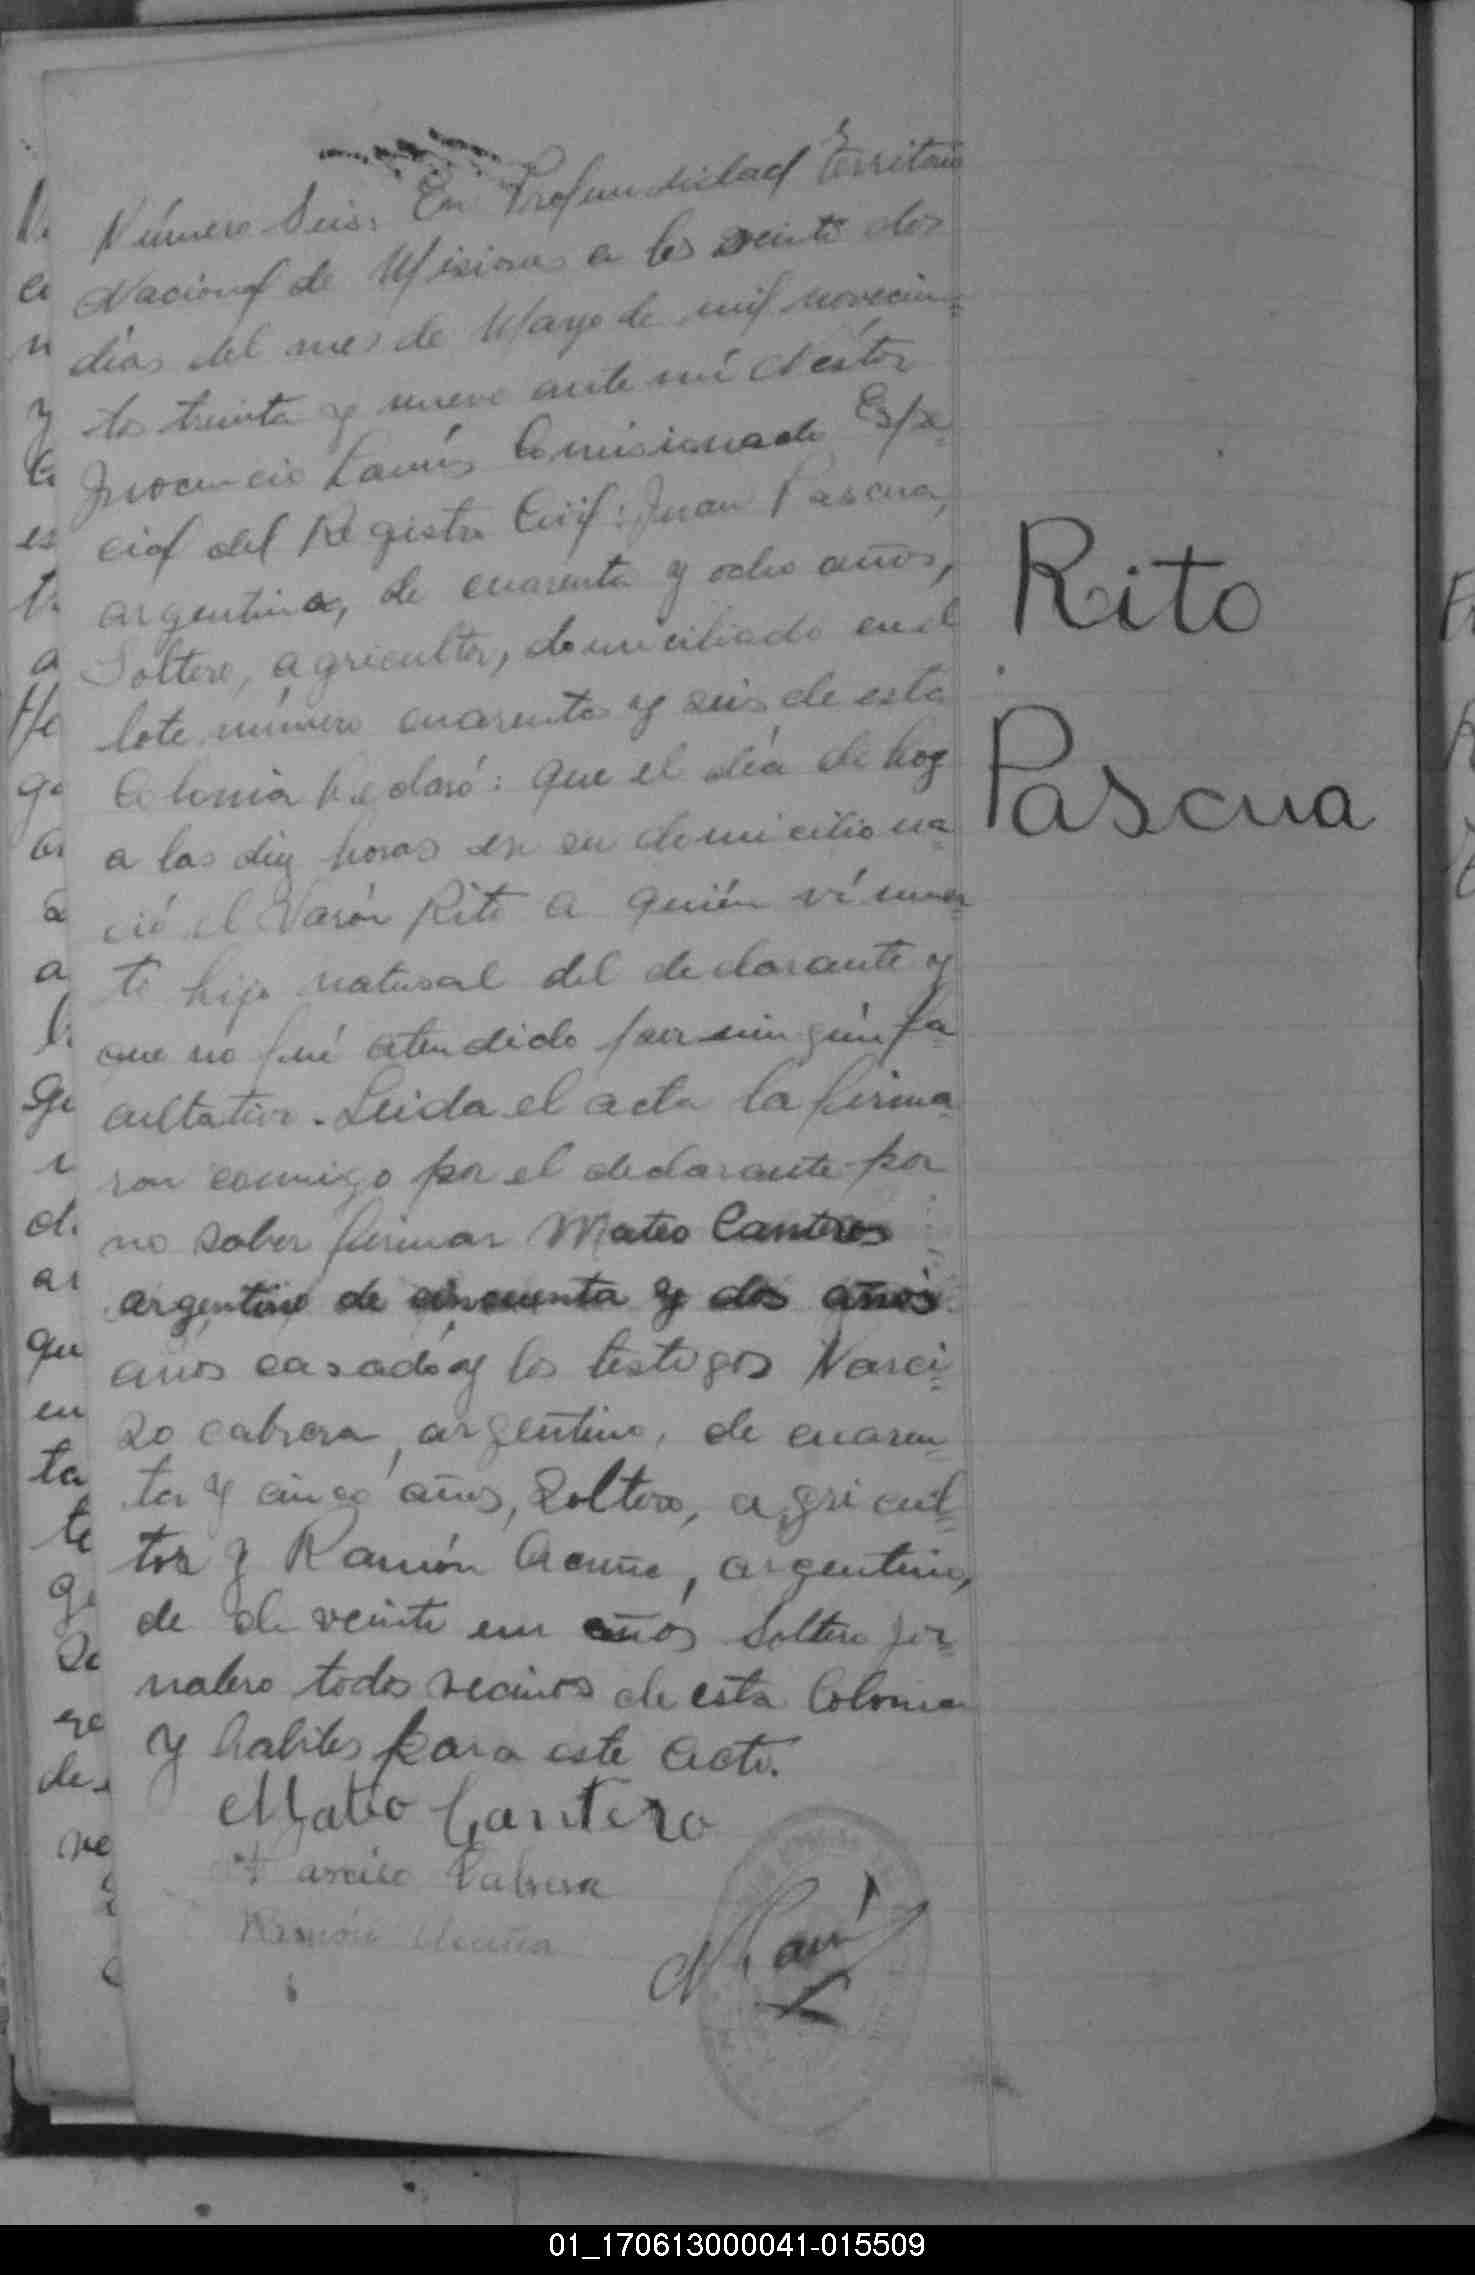 Número Seis: En Profundidad Territorio
Nacional de Misiones a los veinte dos
días del mes de Mayo de mil novecien=
tos treinta y nueve ante mí Néstor
Inocencio Lanús Comisionado Espe=
cial del Registro Civil: Juan Pascua,
argentino, de cuarenta y ocho años,
Soltero, agricultor, domiciliado en el
lote número cuarenta y seis de esta
Colonia declaró: que el día de hoy
a las diez horas en su domicilio na=
ció el Varón Rito a quién ví muer=
to hijo natural del declarante y
que no fué atendido por ningún fa=
cultativo. Leida el acta la firma=
ron conmigo por el declarante por
no saber firmar Mateo Canteros
argentino de cincuenta y dos años
años casado y los testigos Narci=
zo cabrera, argentino, de cuaren=
ta y cinco años, Soltero, agricul=
tor y Ramón Acuña, argentino,
de de veinte un años Soltero jor=
nalero todos vecinos de esta Colonia
y habiles para este acto.
Mateo Cantero
Narciso Cabrera
Ramón Acuña
N. Lanús
Rito
Pascua
01_170613000041-015509